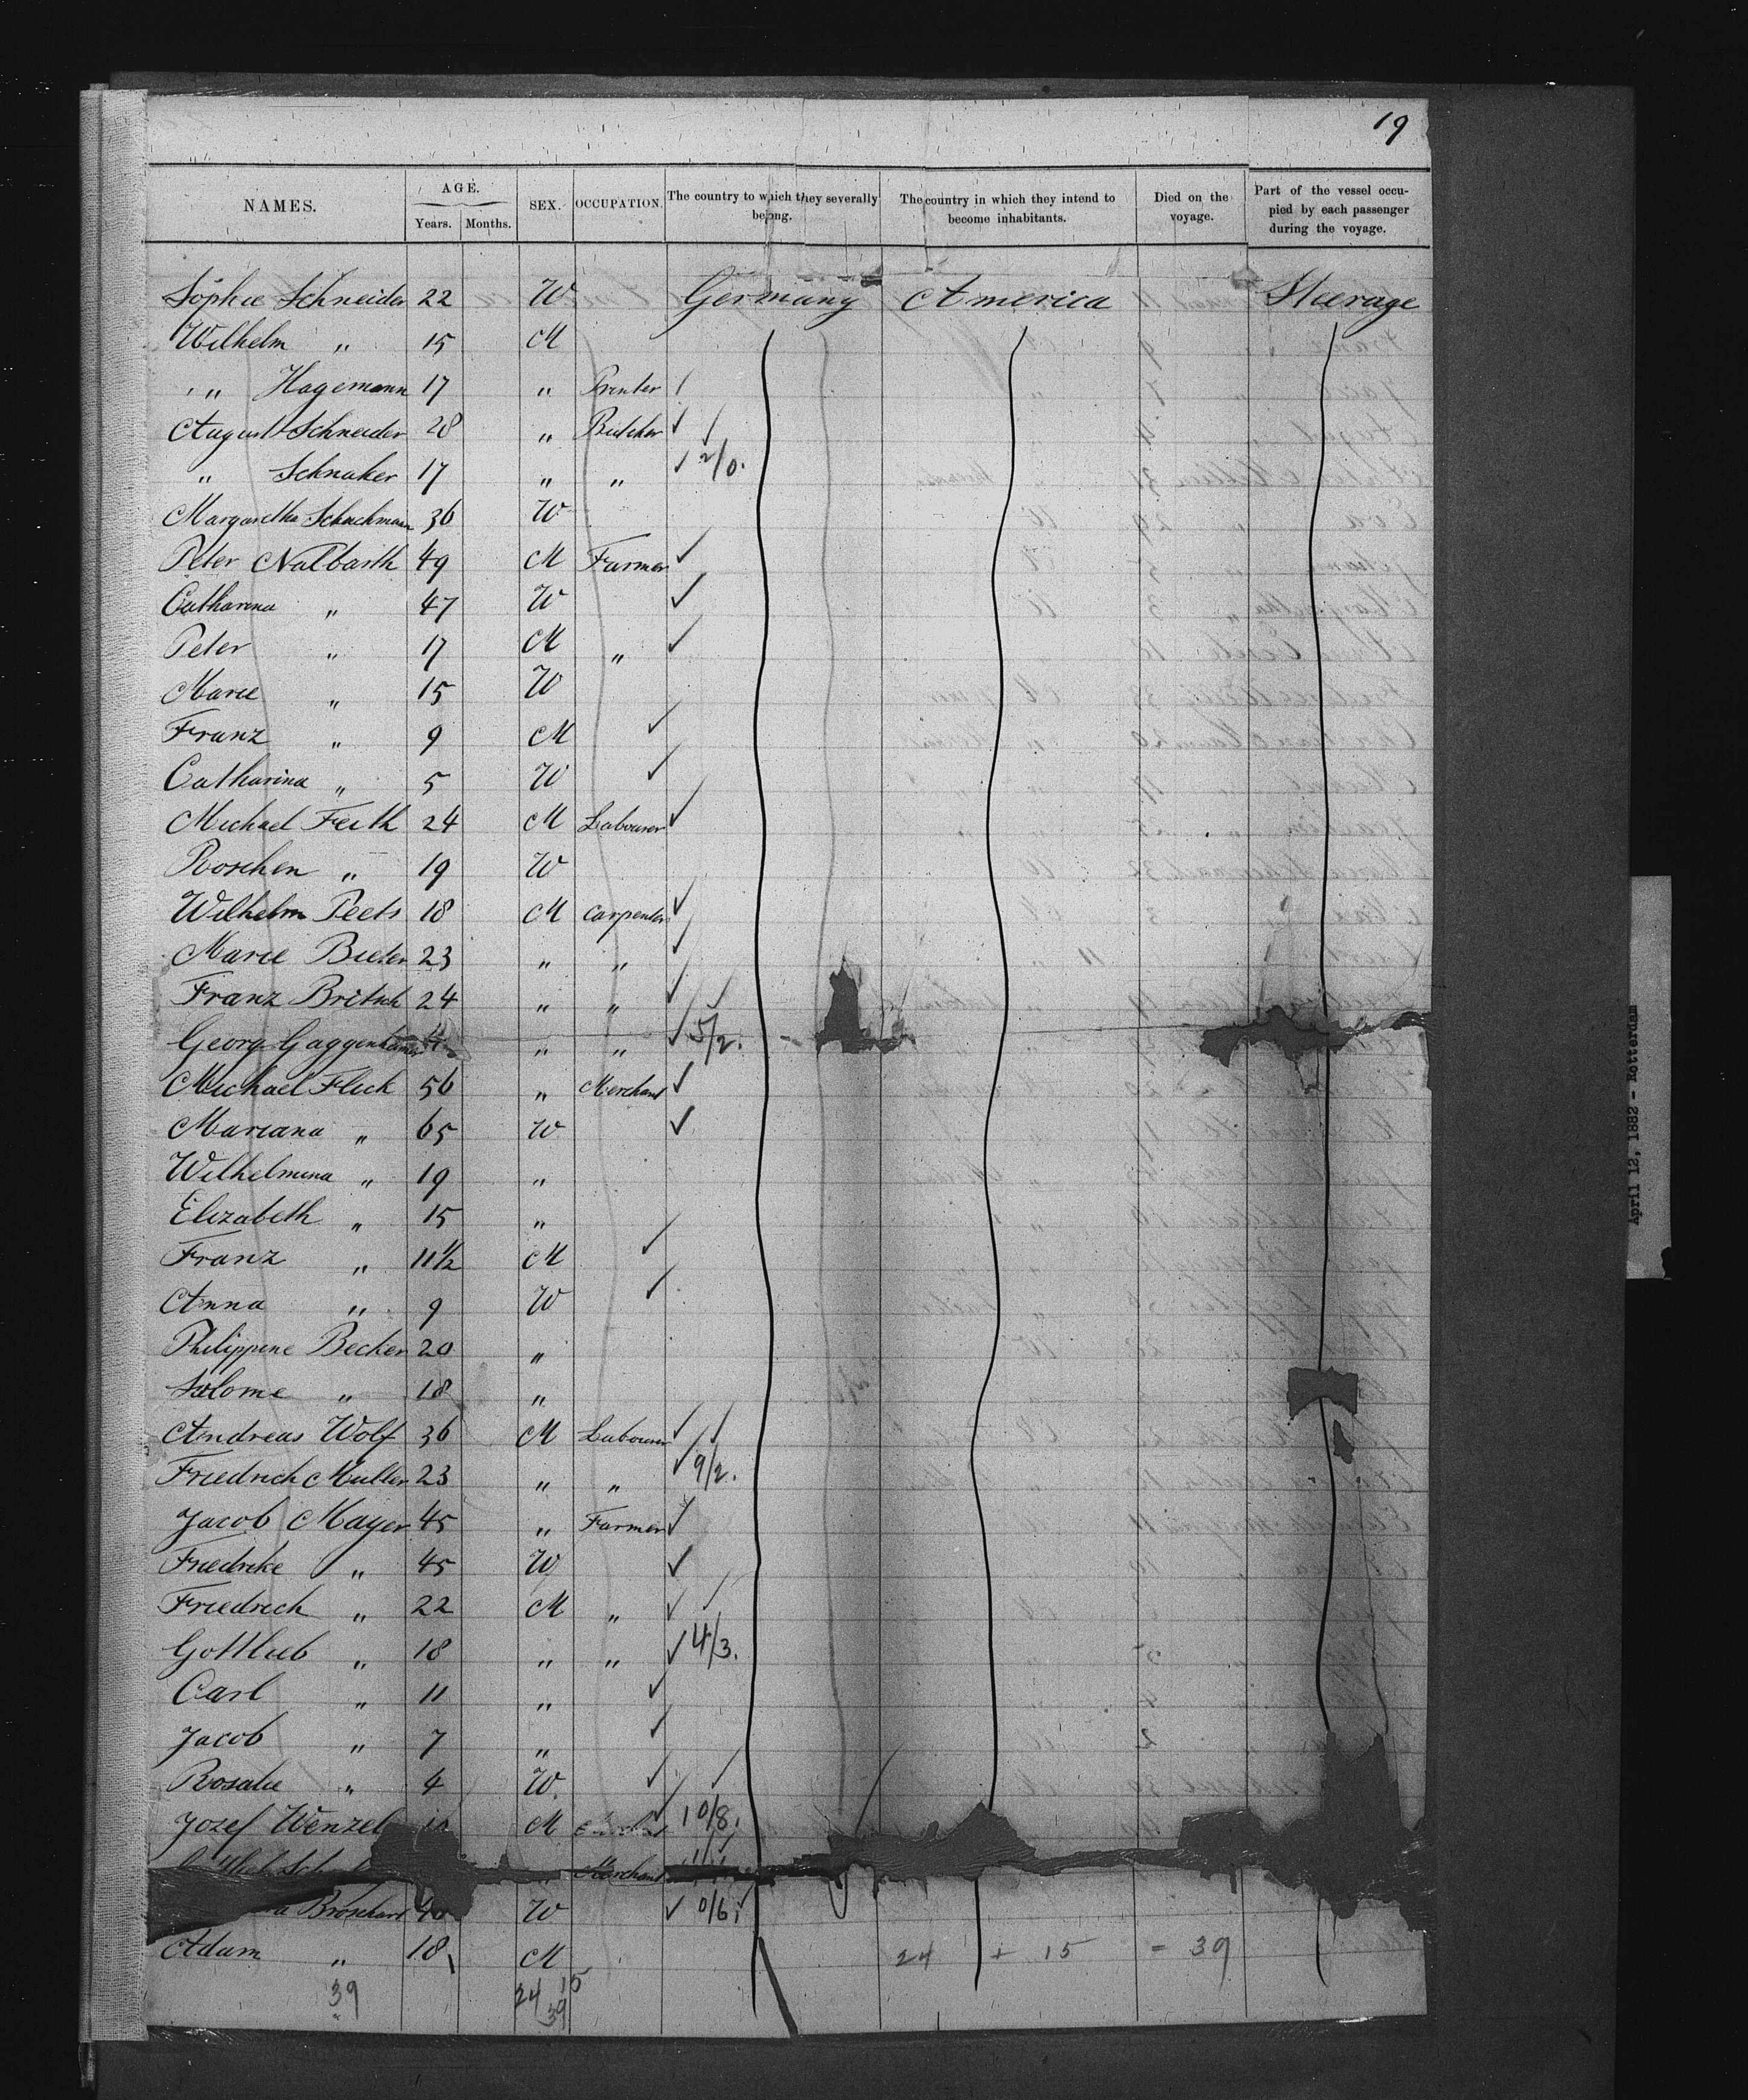 19
NAMES. AGE. Years. Months. SEX. OCCUPATION. The country to which they severally belong. The country in which they intend to become inhabitants. Died on the voyage. Part of the vessel occupied by each passenger during the voyage.
Sophie Schneider 22 W Germany America Steerage
Wilhelm " 15 M
" Hagemann 17 " Printer
August Schneider 28 " Butcher
" Schnaker 17 " " 2/0.
Margaretha Schuchmann 36 W
Peter Nalbarth 49 M Farmer
Catharina " 47 W
Peter " 17 M "
Marie " 15 W
Franz " 9 M
Catharina " 5 W
Michael Feith 24 M Labourer
Roschen " 19 W
Wilhelm Peets 18 M Carpenter
Marie Bieter 23 " "
Franz Britsch 24 " "
Georg " " 5/2.
Michael Flick 56 " Merchant
Mariana " 65 W
Wilhelmina " 19 "
Elizabeth " 15 "
Franz " 11 1/2 M
Anna " 9 W
Philippine Becker 20 "
Salome " 18 "
Andreas Wolf 36 M Labourer
Friedrich Muller 23 " " 9/2.
Jacob Mayer 45 " Farmer
Friedrike " 45 W
Friedrich " 22 M "
Gottlieb " 18 " " 4/3.
Carl " 11 "
Jacob " 7 "
Rosalie " 4 W.
Jozef Wenzel M 10/8.
" Merchant
Broschart 40 W 0/6.
Adam " 18 M 24 + 15 = 39
39 24 15
39
April 12, 1882 - Rotterdam